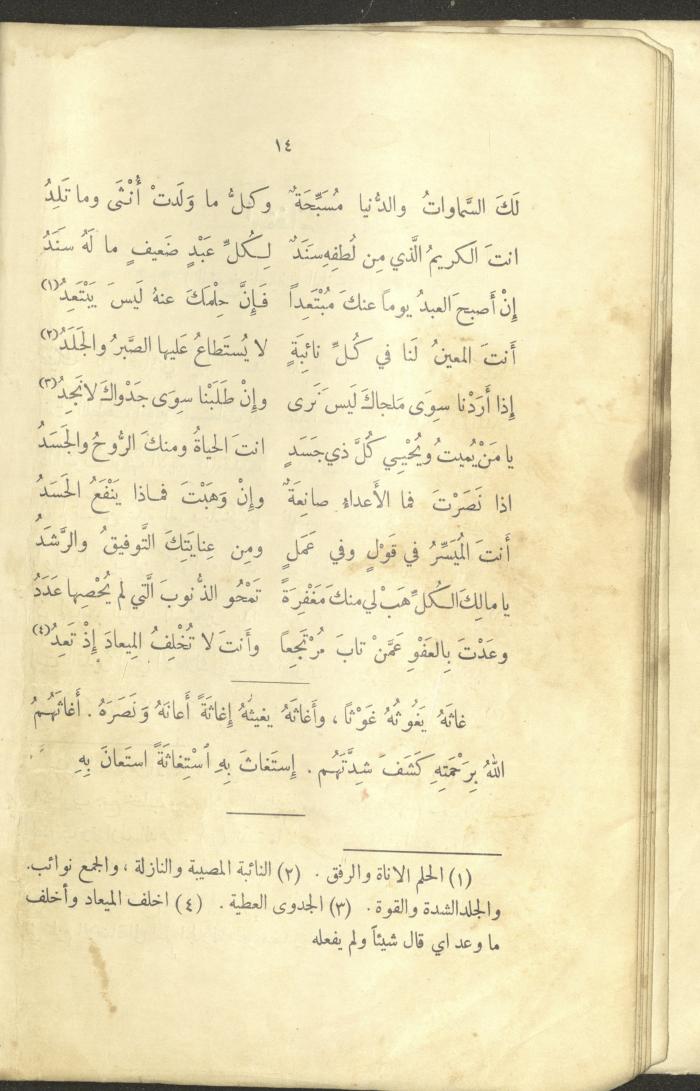 ١٤
لَكَ السَّماواتُ والدُّنيا مُسَبِّحَةٌ وكلُّ ما وَلَدتْ أُنْثَى وما تَلِدُ
انتَ الكريمُ الَّذي مِن لُطفِهِ سَنَدٌ لِكُلِّ عَبْدٍ ضَعيفٍ ما لَهُ سنَدُ
إِنْ أَصبحَ العبدُ يوماً عنكَ مُبْتَعِداً فَإِنَّ حِلْمَكَ عنهُ لَيسَ يَبْتَعِدُ(١)
أَنتَ المعينُ لَنا في كُلِّ نائِبَةٍ لا يُستَطاعُ عَليها الصَّبرُ والجَلَدُ(٢)
إِذا أَرَدْنا سِوَى مَلجاكَ لَيسَ نَرى وإِنْ طَلَبْنا سِوَى جَدْواكَ لا نَجِدُ(٣)
يا مَنْ يُميتُ ويُحْيِي كُلَّ ذي جَسَدٍ انتَ الحياةُ ومنكَ الرُّوحُ والجَسَدُ
اذا نَصَرْتَ فما الأَعداءِ صانِعَةٌ وإِنْ وَهَبْتَ فماذا يَنْفَعُ الحَسَدُ
أَنتَ المُيَسِّرُ في قَوْلٍ وفي عَمَلٍ ومِن عِنايَتِكَ التَّوفيقُ والرَّشَدُ
يا مالِكَ الكُلِّ هَبْ لي منكَ مَغْفِرَةً تَمْحُو الذُّنوبَ الَّتي لم يُحْصِها عَدَدُ
وعَدْتَ بِالعَفْوِ عَمَّنْ تابَ مُرْتَجِعاً وأَنتَ لا تُخْلِفُ المِيعادَ إِذْ تَعِدُ(٤)
غاثَهُ يَغُوثُهُ غَوْثًا ، وأَغاثَهُ يغيثُهُ إِغاثَةً أَعانَهُ وَنَصَرَهُ . أَغاثَهُمُ
اللهُ بِرَحْمَتِهِ كَشَفَ شِدَّتَهُم . إِستَغاثَ بِهِ ٱسْتِغاثَةً استَعانَ بِهِ
(١) الحلم الاناة والرفق . (٢) النائبة المصيبة والنازلة ، والجمع نوائب.
والجلد الشدة والقوة . (٣) الجدوى العطية . (٤) اخلف الميعاد وأخلف
ما وعد اي قال شيئاً ولم يفعله